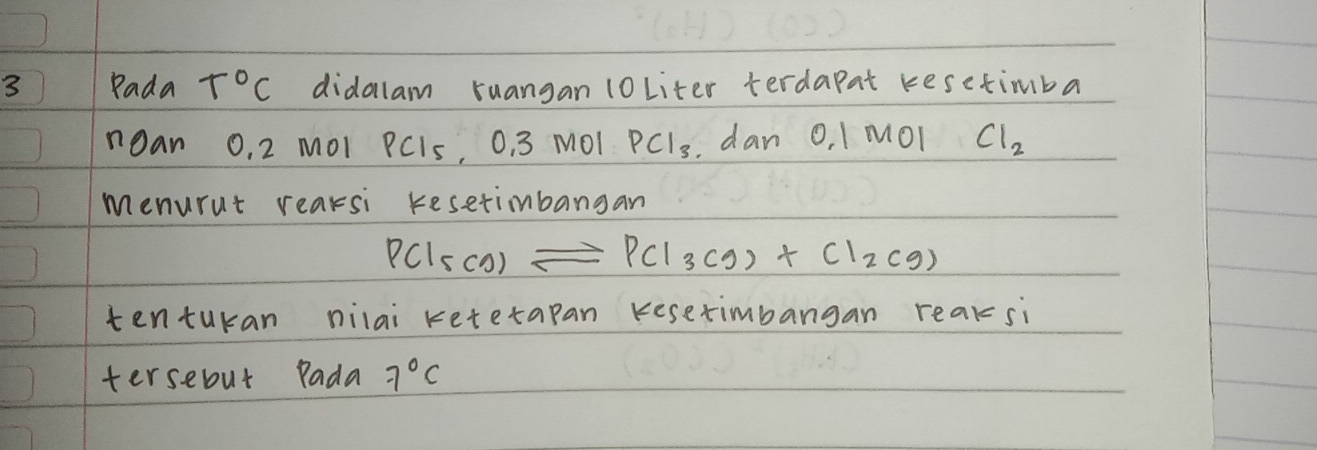 3 Pada T°C didalam ruangan 10 Liter terdapat kesetimba
ngan 0,2 mol PCl5, 0,3 mol PCl3, dan 0,1 mol Cl2
menurut reaksi kesetimbangan
PCl5(g) ⇌ PCl3(g) + Cl2(g)
tentukan nilai ketetapan kesetimbangan reaksi
tersebut Pada 7°C